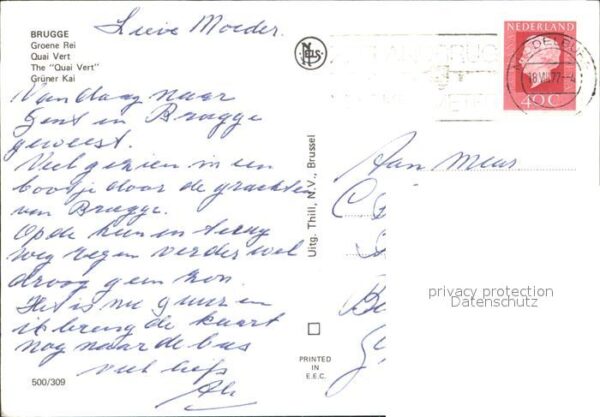 Lieve Moeder.
BRUGGE
Groene Rei
Quai Vert
The "Quai Vert"
Grüner Kai
NELS
NEDERLAND
40C
MIDDELBURG
18 VIII 77
Vandaag naar
Gent en Brugge
geweest.
Veel gezien in een
bootje door de grachten
van Brugge.
Op de heen en terug
weg regen verder wel
droog geen zon.
Het is nu 9 uur en
ik breng de kaart
nog naar de bus
veel liefs
Uitg. Thill, N.V., Brussel
Aan Mevr
privacy protection
Datenschutz
PRINTED
IN
E.E.C.
500/309